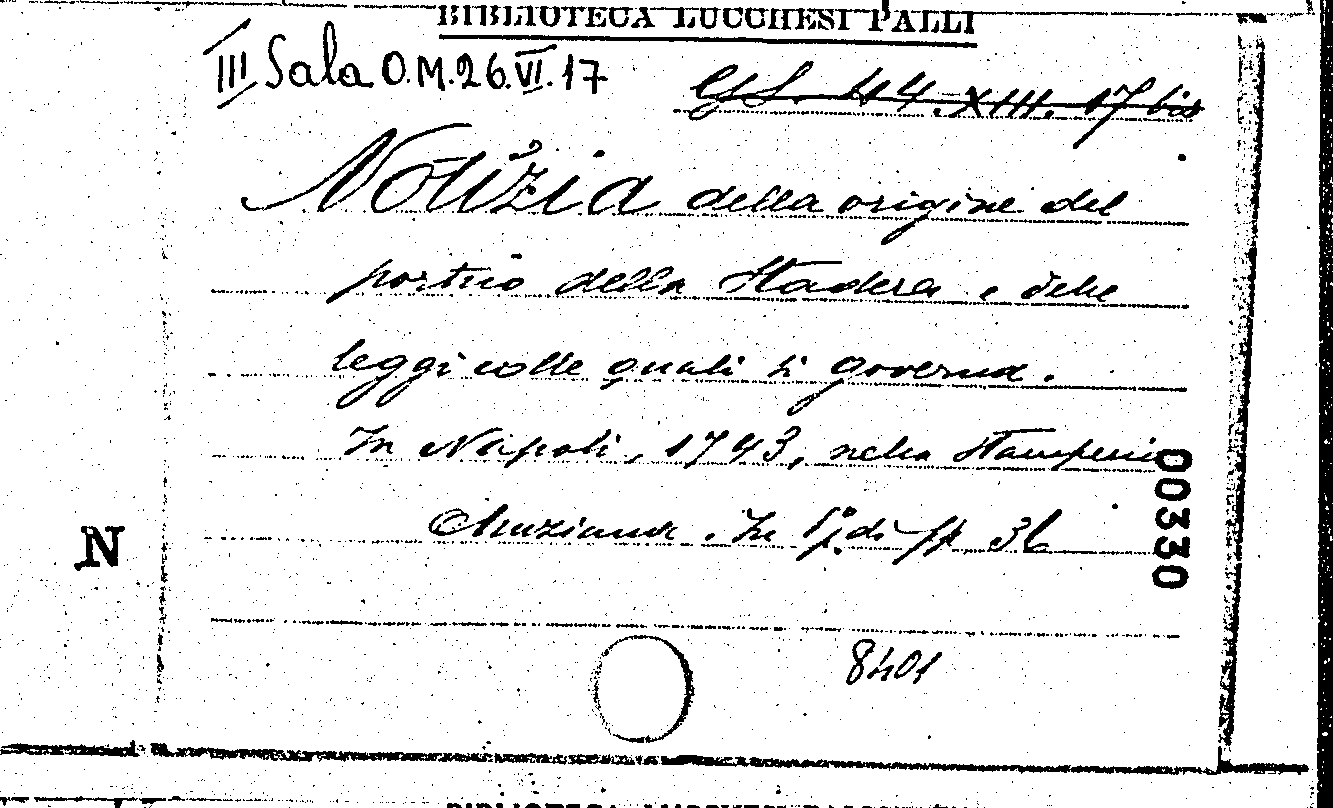 BIBLIOTECA LUCCHESI PALLI
III Sala O.M.26.VI.17
44.XIII.17 bis
Notizia della origine del
portico della Stadera e delle
leggi colle quali si governa.
In Napoli, 1743, nella Stamperia
Muziana. In 8º di pp 36
N
00330
8401
BIBLIOTECA LUCCHESI PALLI